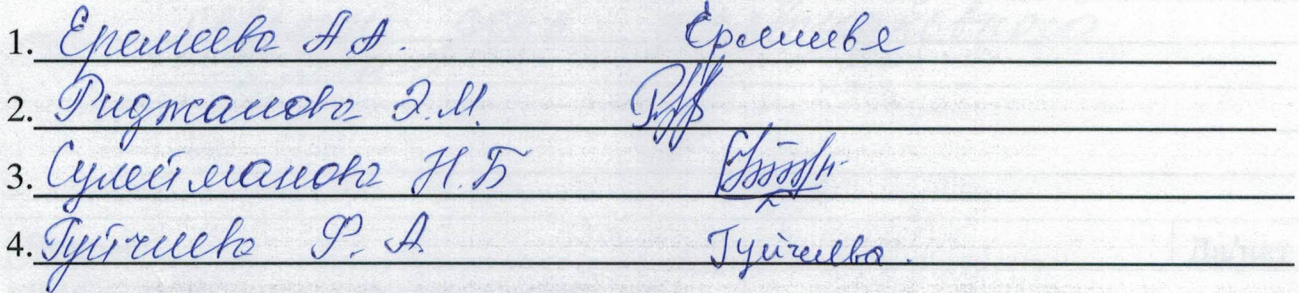 1. Еремеева А А. Ермеева
2. Риджанова Э.М.
3. Сулейманова Н.Б
4. Гуйчиева Ф. А. Гуйчиева.